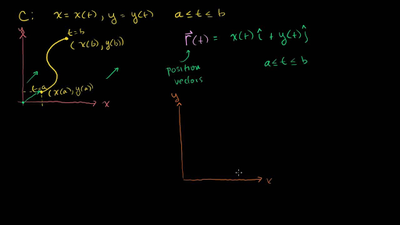 C: x = x(t), y = y(t) a ≤ t ≤ b
y
t=b
(x(b), y(b))
t=a
(x(a), y(a))
x
r⃗(t) = x(t) î + y(t) ĵ
a ≤ t ≤ b
position
vectors
y
x